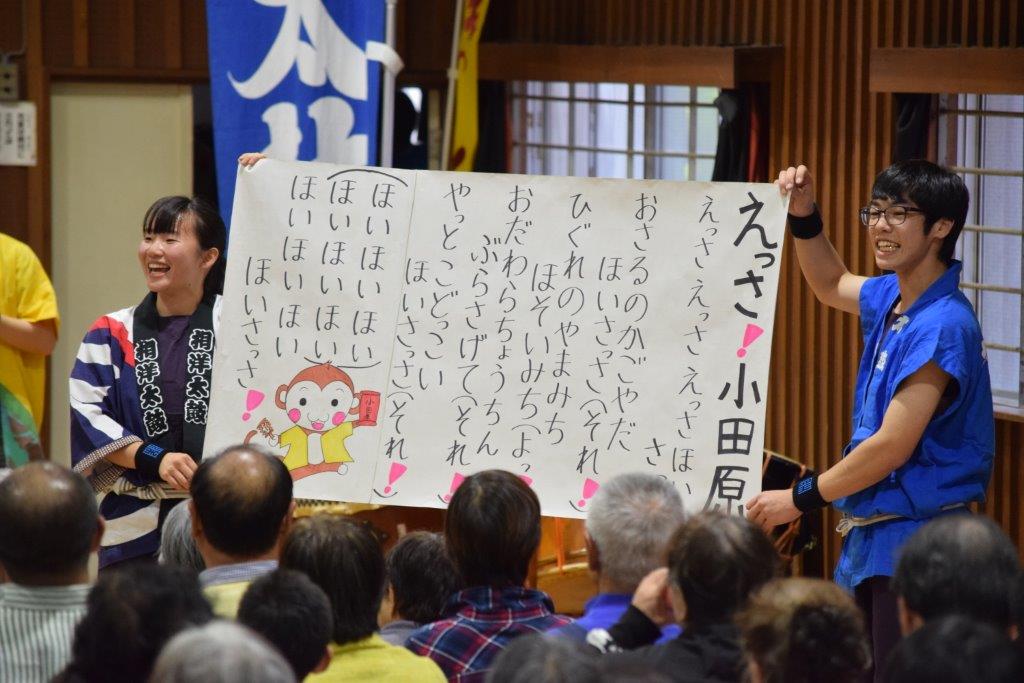 えっさ!小田原
えっさ えっさ えっさ ほい
さっ
おさるのかごやだ
ほいさっさ(それ!)
ひぐれのやまみち
ほそいみち(よっ!)
おだわらちょうちん
ぶらさげて(それ!)
やっとこどっこい
ほいさっさ(それ!)
(ほい ほい ほい
ほい ほい ほい
ほい ほい ほい
ほいさっさ!
小田原
相洋太鼓
相洋太鼓
太鼓